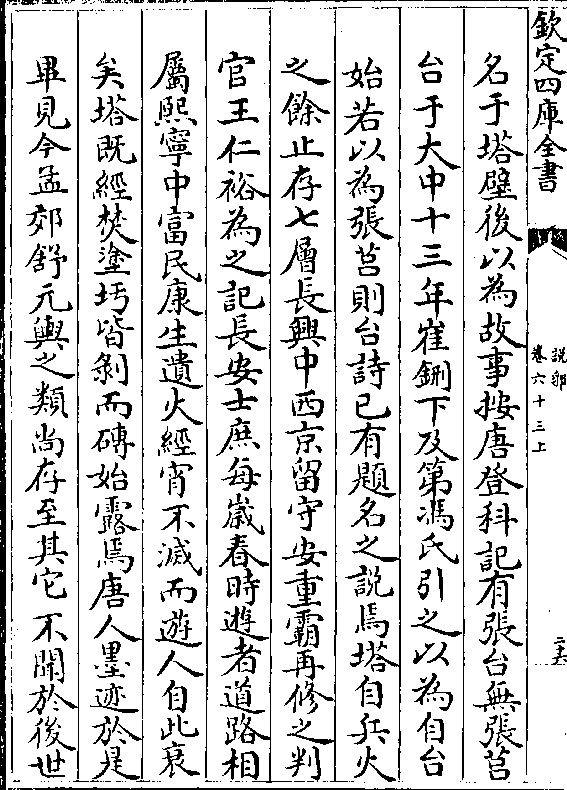 欽定四庫全書
說郛
卷六十三上
二十六
名于塔壁後以為故事按唐登科記有張台無張莒
台于大中十三年崔鉶下及第馮氏引之以為自台
始若以為張莒則台詩已有題名之說焉塔自兵火
之餘止存七層長興中西京留守安重霸再修之判
官王仁裕為之記長安士庶每嵗春時遊者道路相
屬熙寧中富民康生遺火經宵不滅而遊人自此衰
矣塔既經焚塗圬皆剝而磚始露焉唐人墨迹於是
畢見今孟郊舒元輿之類尚存至其它不聞於後世